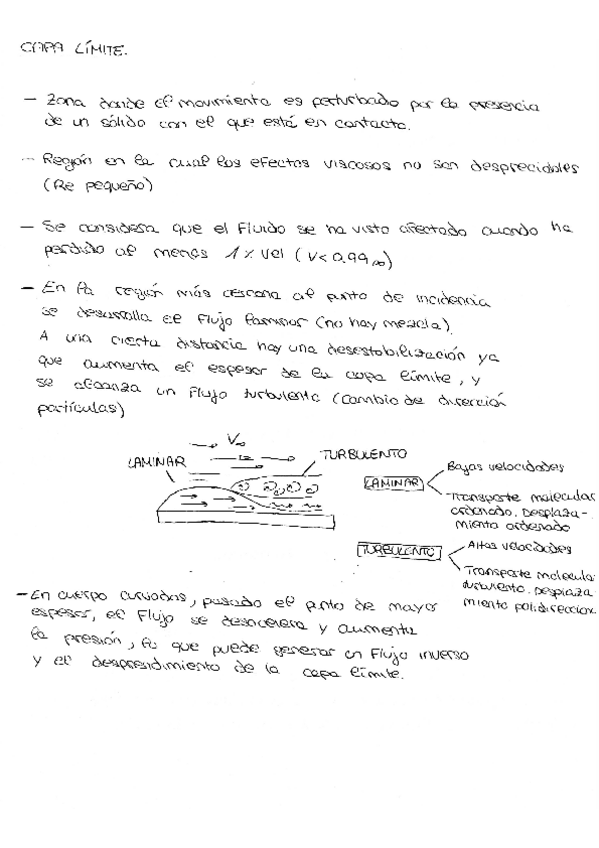 CAPA LÍMITE.
- Zona donde el movimiento es perturbado por la presencia
de un sólido con el que está en contacto.
- Región en la cual los efectos viscosos no son despreciables
(Re pequeño)
- Se considera que el fluido se ha visto afectado cuando ha
perdido al menos 1% vel (V < 0.99∞)
- En la región más cercana al punto de incidencia
se desarrolla el flujo laminar (no hay mezcla).
A una cierta distancia hay una desestabilización ya
que aumenta el espesor de la capa límite, y
se alcanza un flujo turbulento (cambio de dirección
partículas)
V∞
LAMINAR
TURBULENTO
LAMINAR
Bajas velocidades
Transporte molecular
ordenado. Desplaza-
miento ordenado
TURBULENTO
Altas velocidades
Transporte molecula
turbulento. Desplaza
miento polidireccion
- En cuerpo curvados, pasado el punto de mayor
espesor, el flujo se desacelera y aumenta
la presión, lo que puede generar un flujo inverso
y el desprendimiento de la capa límite.